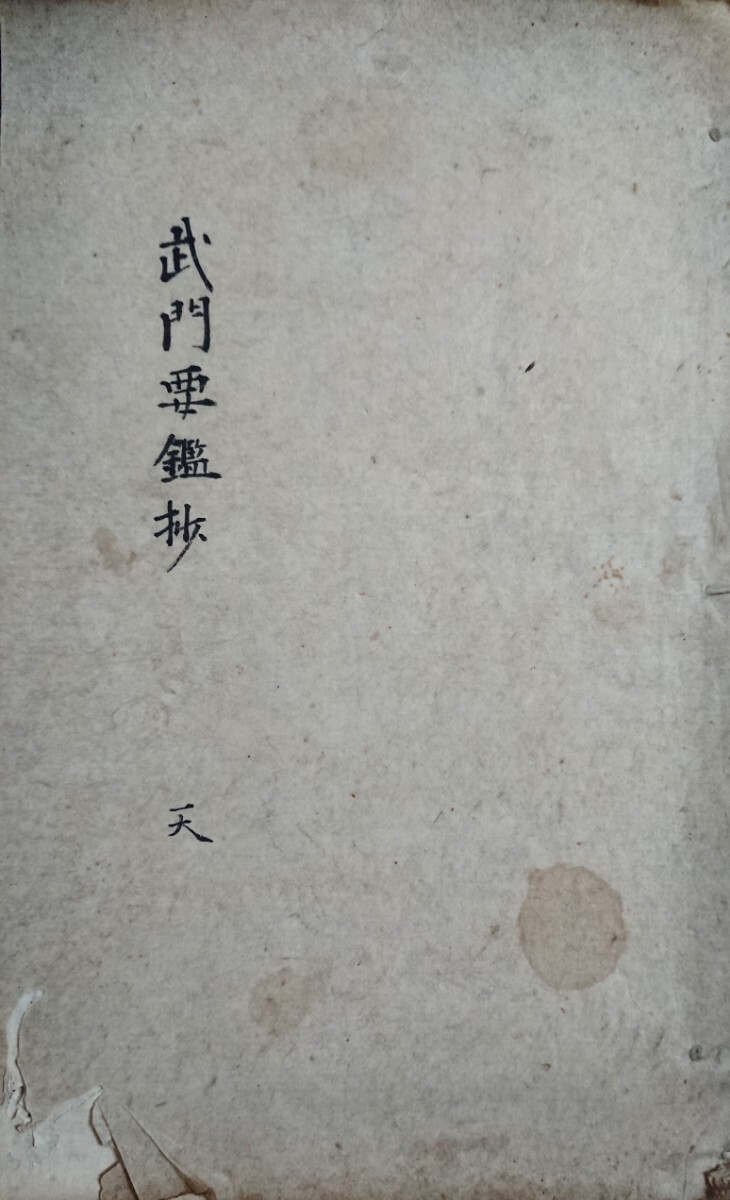 武門要鑑抄
天